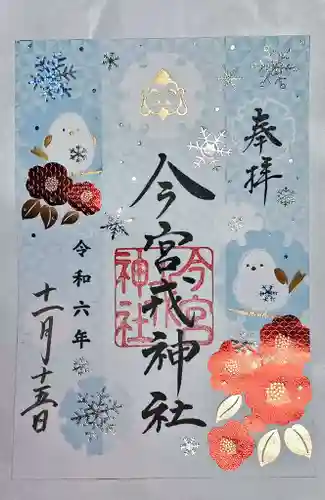 奉拝
今宮戎神社
今宮戎神社
令和六年
十一月十五日